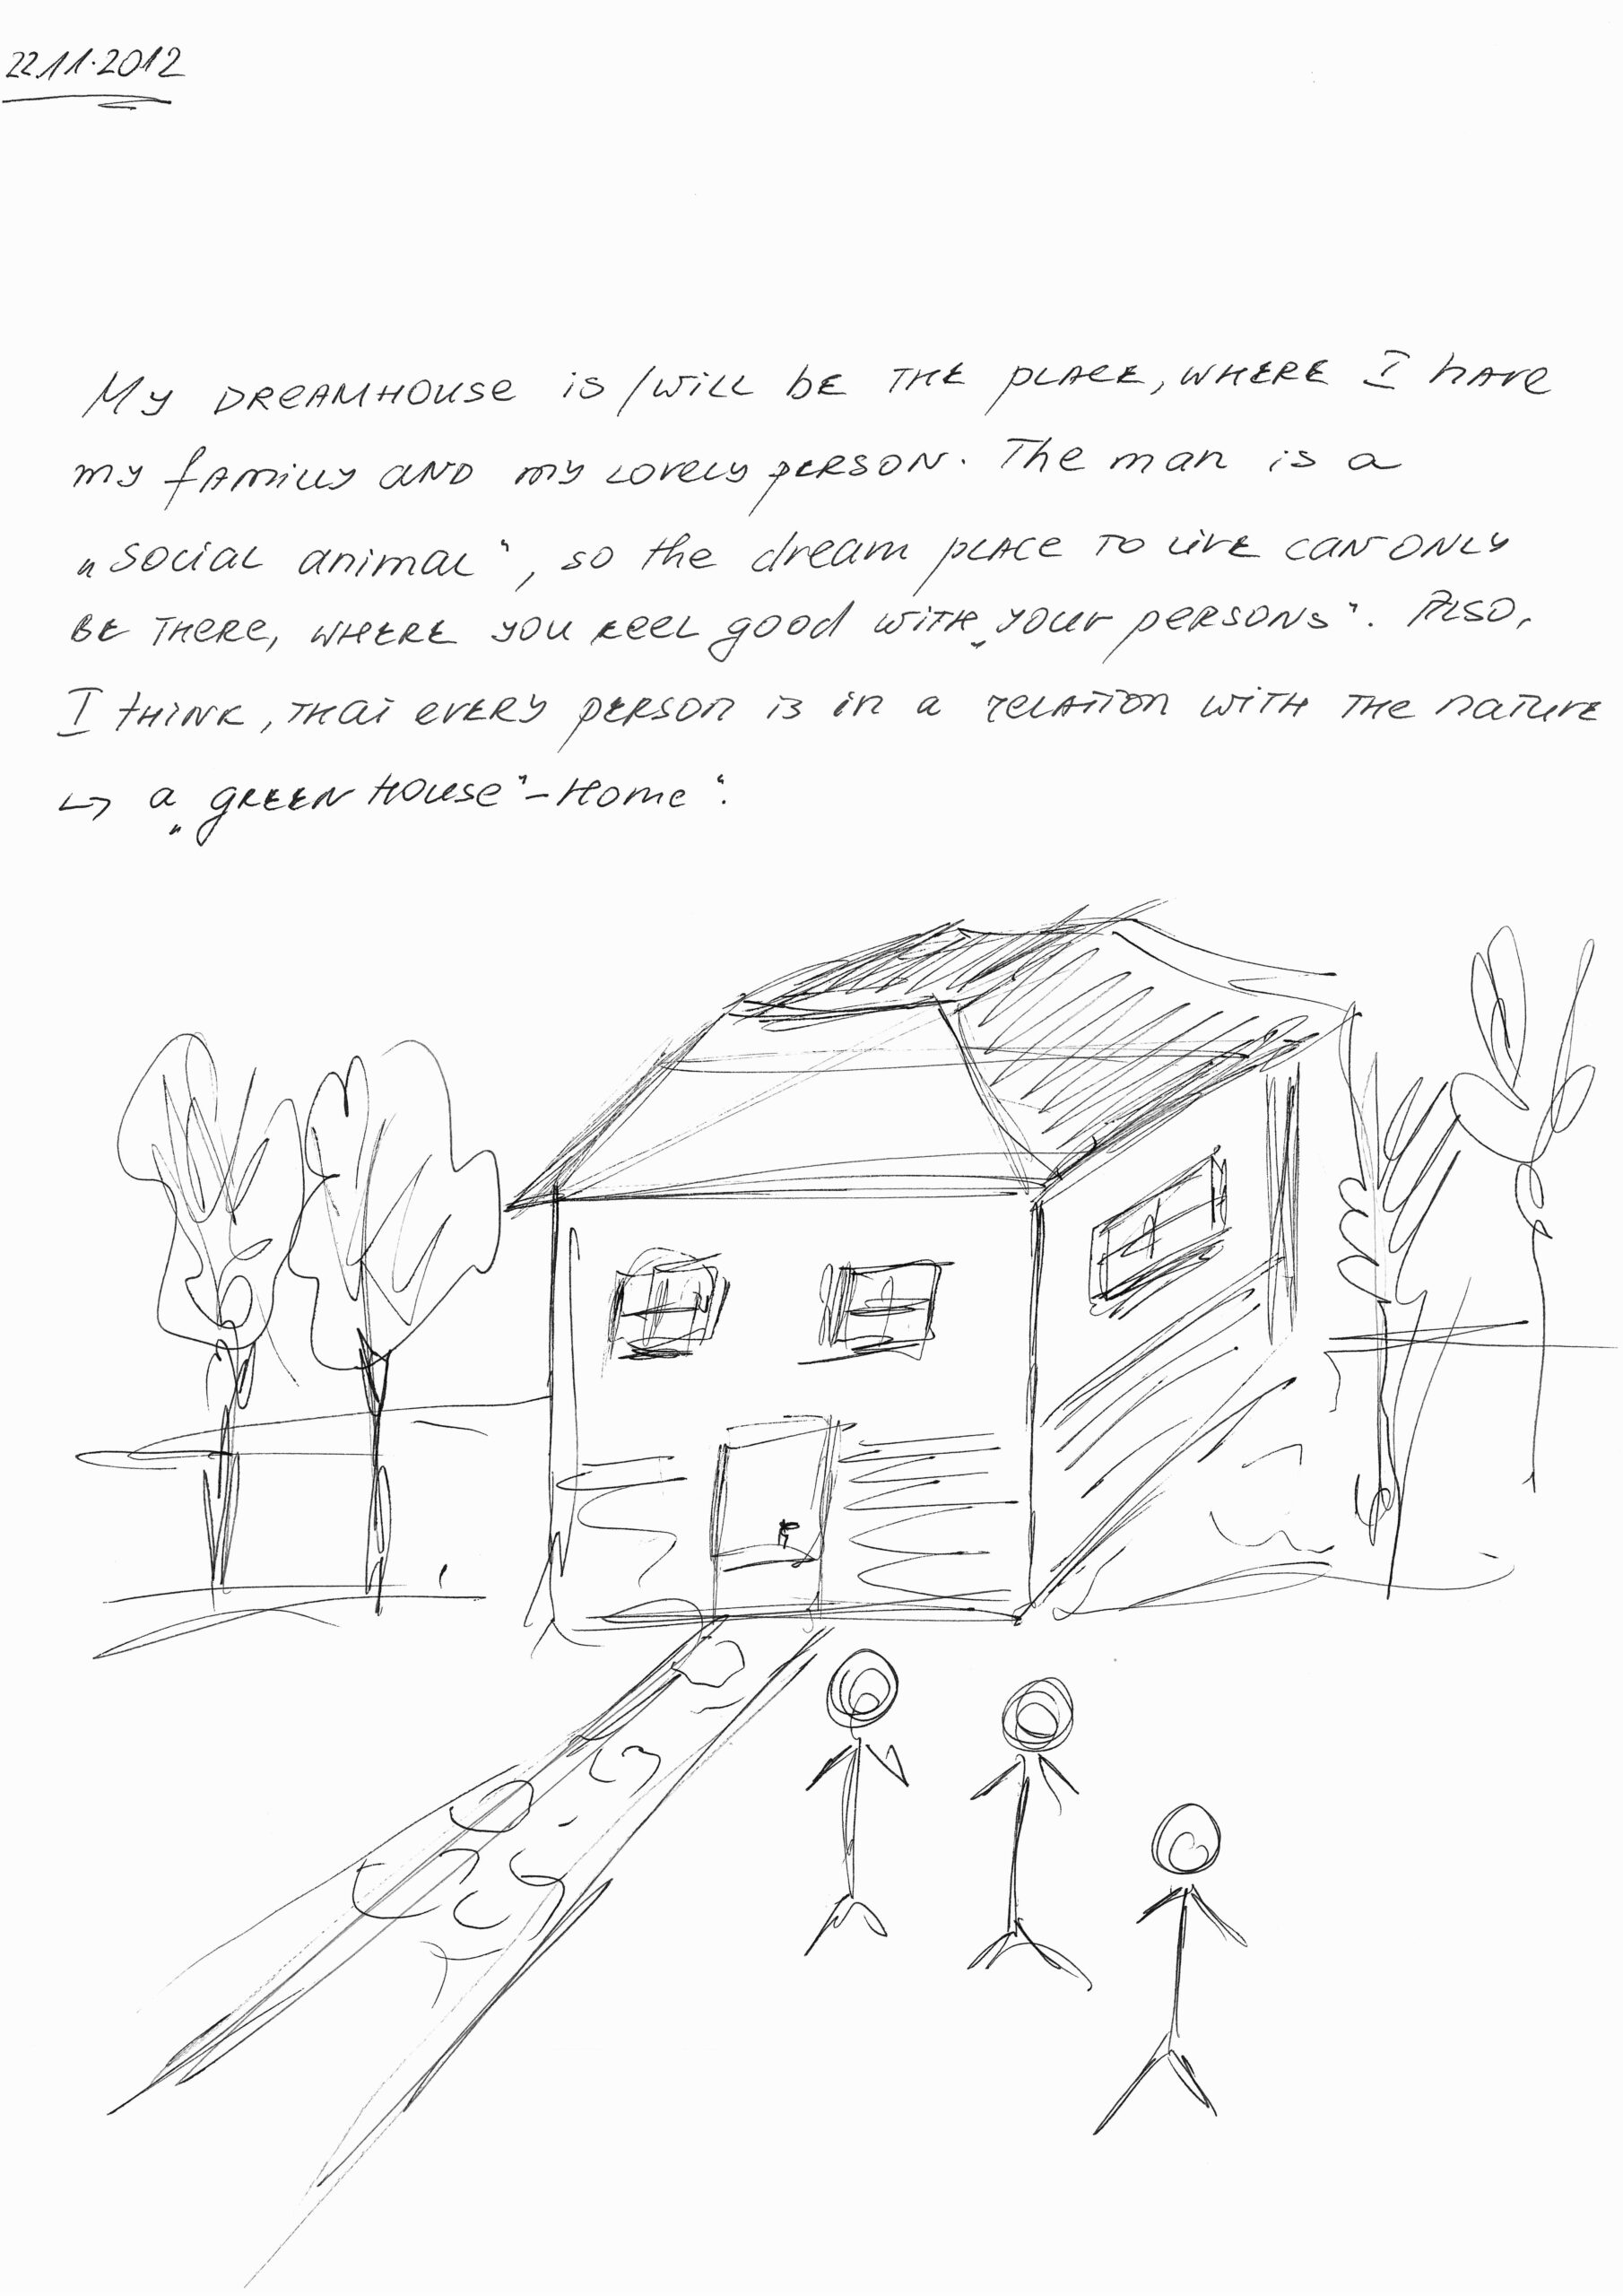 22.11.2012
My DREAMHOUSE is/will be the place, where I have
my familly and my lovely person. The man is a
„Social animal“, so the dream place to live can only
be there, where you feel good with „your persons“. Also,
I think, that every person is in a relation with the nature
↳ a „green house“-Home“.